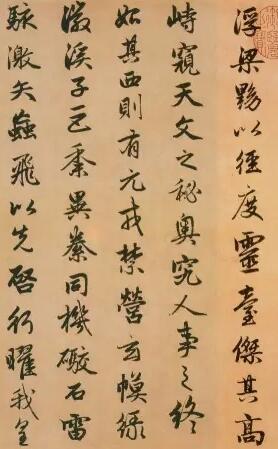 浮梁黝以徑度靈臺傑其高
峙窺天文之秘奧究人事之終
始其西則有元戎禁營玄幙綠
徽溪子巨黍異絭同機礮石雷
駭激矢蝱飛以先啓行曜我皇